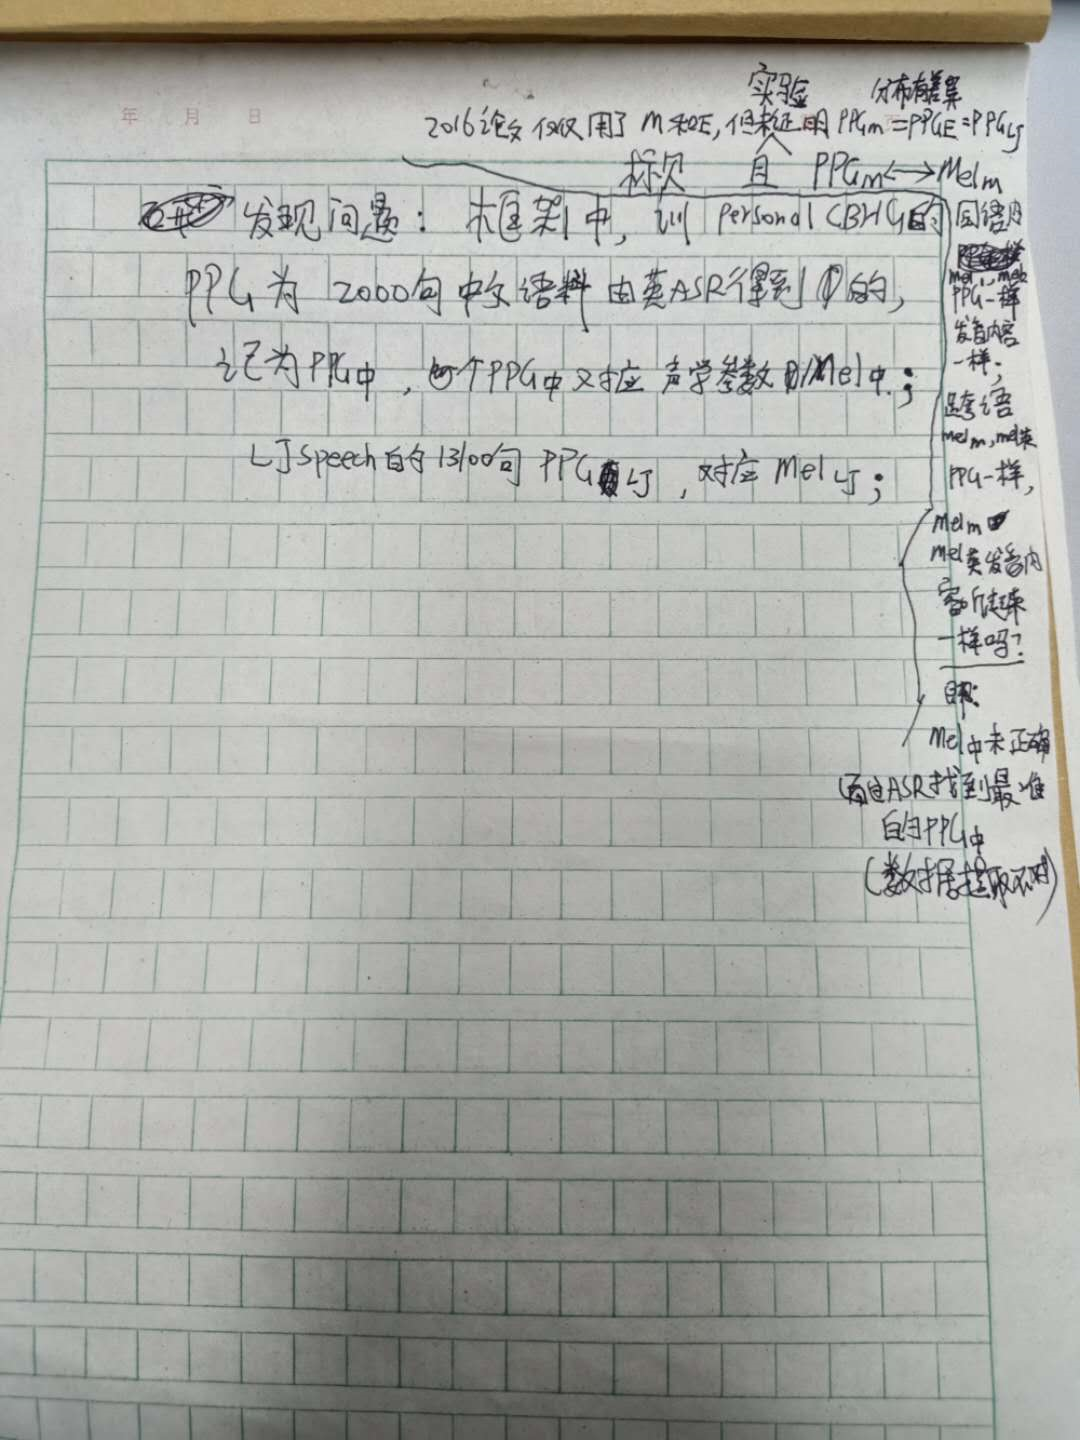 年 月 日
实验 分布有差异
2016论文仅仅用了M和E,但未证明PPGm=PPGE=PPGLJ
且 PPGm↔Melm
发现问题:框架中,训personal CBHG的
PPG为2000句中文语料由英ASR得到的,
记为PPG中,每个PPG中又对应声学参数Mel中;
LJSpeech的13100句PPGLJ,对应MelLJ;
同语内
mel1,mel2
PPG一样
发音内容
一样;
跨语
melm,mel英
PPG一样,
melm
mel英发音内
容听起来
一样吗?
Mel中未正确
通过ASR找到最准
的PPG中
(数据提取不对)